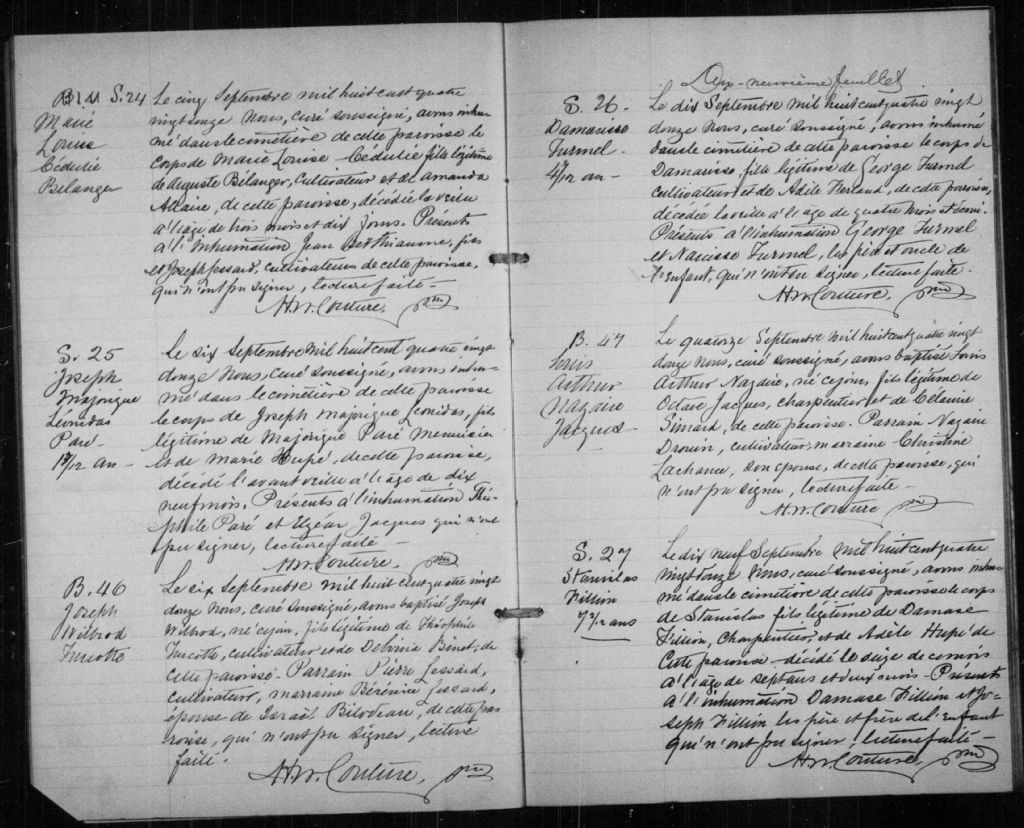 B. 41 S. 24
Marie
Louise
Cédulie
Bélanger
Le cinq Septembre mil huit cent quatre
vingt douze Nous, curé soussigné, avons inhu-
mé dans le cimetière de cette paroisse le
corps de Marie Louise Cédulie fille légitime
de Auguste Bélanger, Cultivateur et de Amanda
Allaire, de cette paroisse, décédée la veille
à l'âge de trois mois et dix jours. Présents
à l'inhumation Jean Berthiaume, fils
et Joseph Lessard, cultivateurs de cette paroisse,
qui n'ont pu signer, lecture faite -
H. W. Couture, ptre
S. 25
Joseph
Majorique
Léonidas
Paré -
19/12 an -
Le six Septembre mil huit cent quatre vingt
douze Nous, curé soussigné, avons inhu-
mé dans le cimetière de cette paroisse
le corps de Joseph Majorique Léonidas, fils
légitime de Majorique Paré Menuisier
et de Marie Hupé, de cette paroisse,
décédé l'avant veille à l'âge de dix
neuf mois. Présents à l'inhumation Thé-
phile Paré et Elzéar Jacques qui n'ont
pu signer, lecture faite -
H. W. Couture, ptre
B. 46
Joseph
Wilbrod
Turcotte
Le six Septembre mil huit cent quatre vingt
douze Nous, curé soussigné, avons baptisé Joseph
Wilbrod, né ce jour, fils légitime de Théophile
Turcotte, cultivateur et de Delvina Binet, de
cette paroisse - Parrain Pierre Lessard,
cultivateur, marraine Bérénice Lessard,
épouse de Israël Bilodeau, de cette pa-
roisse, qui n'ont pu signer, lecture
faite.
H. W. Couture, ptre
Dix-neuvième feuillet
S. 26 -
Damarisse
Turmel -
4/12 an -
Le dix Septembre mil huit cent quatre vingt
douze Nous, curé soussigné, avons inhumé
dans le cimetière de cette paroisse le corps de
Damarisse, fille légitime de George Turmel
cultivateur et de Adèle Ferland, de cette paroisse,
décédée la veille à l'âge de quatre mois et demi.
Présents à l'inhumation George Turmel
et Narcisse Turmel, les père et oncle de
l'enfant, qui n'ont su signer, lecture faite -
H. W. Couture, ptre
B. 47
Louis
Arthur
Nazaire
Jacques
Le quatorze Septembre mil huit cent quatre vingt
douze Nous, curé soussigné, avons baptisé Louis
Arthur Nazaire, né ce jour, fils légitime de
Octave Jacques, charpentier et de Célanire
Simard, de cette paroisse. Parrain Nazaire
Drouin, cultivateur, marraine Christine
Lachance, son épouse, de cette paroisse, qui
n'ont pu signer, lecture faite -
H. W. Couture ptre
S. 27
Stanislas
Fillion
7 2/12 ans
Le dix neuf Septembre mil huit cent quatre
vingt douze Nous, curé soussigné, avons inhu-
mé dans le cimetière de cette paroisse le corps
de Stanislas fils légitime de Damase
Fillion, Charpentier, et de Adèle Hupé de
Cette paroisse - décédé le seize de ce mois
à l'âge de sept ans et deux mois - Présents
à l'inhumation Damase Fillion et Jo-
seph Fillion les père et frère de l'enfant
qui n'ont pu signer, lecture faite -
H. W. Couture, ptre